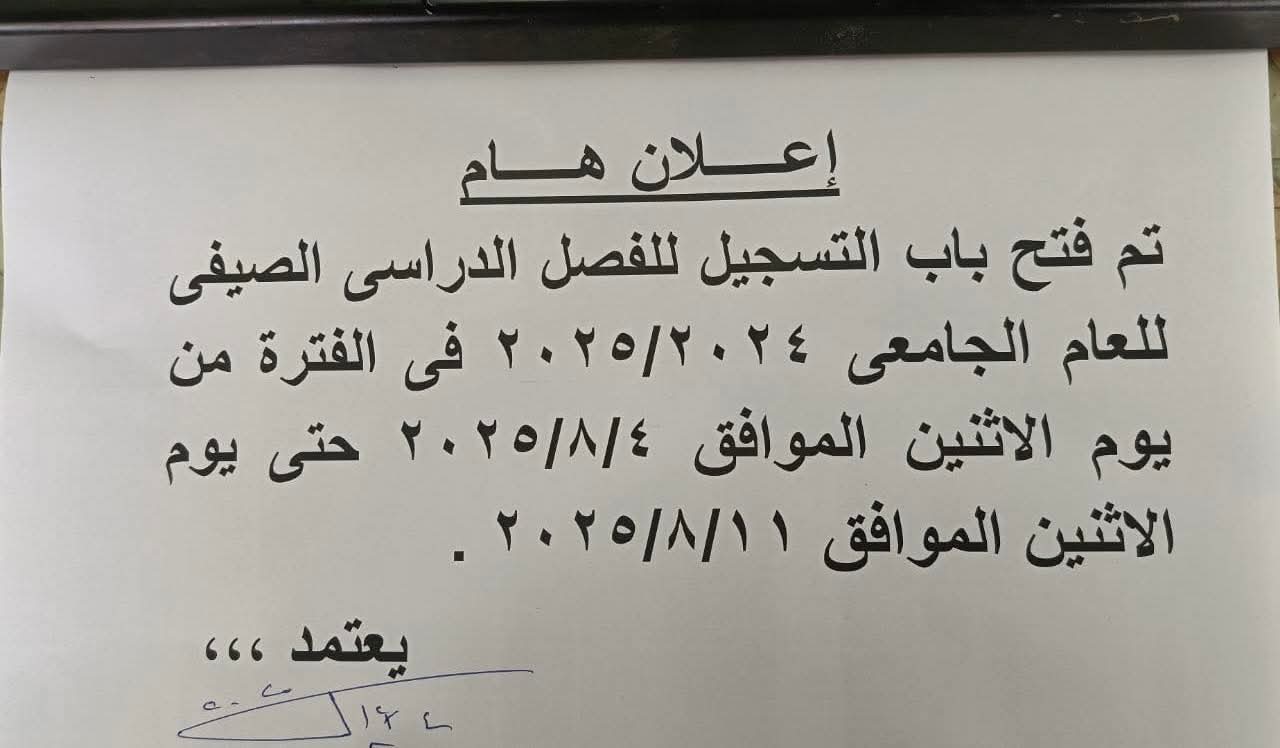 إعـــلان هـــام
تم فتح باب التسجيل للفصل الدراسى الصيفى
للعام الجامعى ٢٠٢٥/٢٠٢٤ فى الفترة من
يوم الاثنين الموافق ٢٠٢٥/٨/٤ حتى يوم
الاثنين الموافق ٢٠٢٥/٨/١١ .
يعتمد ،،،